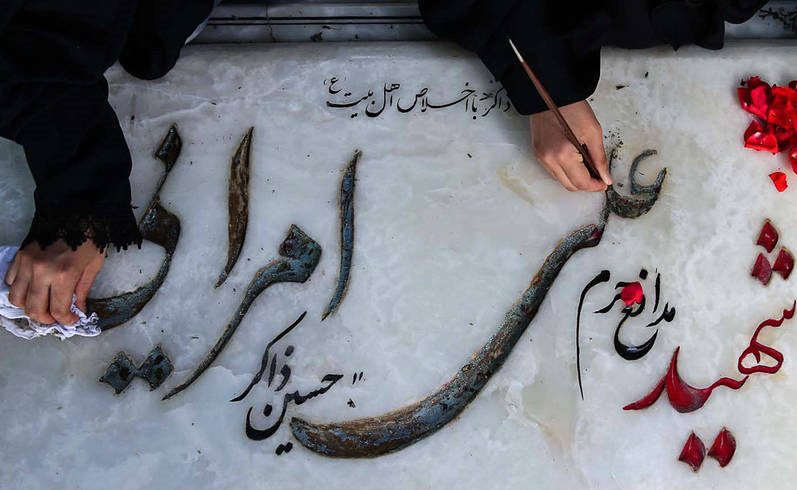 ذاکر با اخلاص اهل بیت (ع)
شهید
مدافع حرم
علی امرایی
"حسین ذاکر"